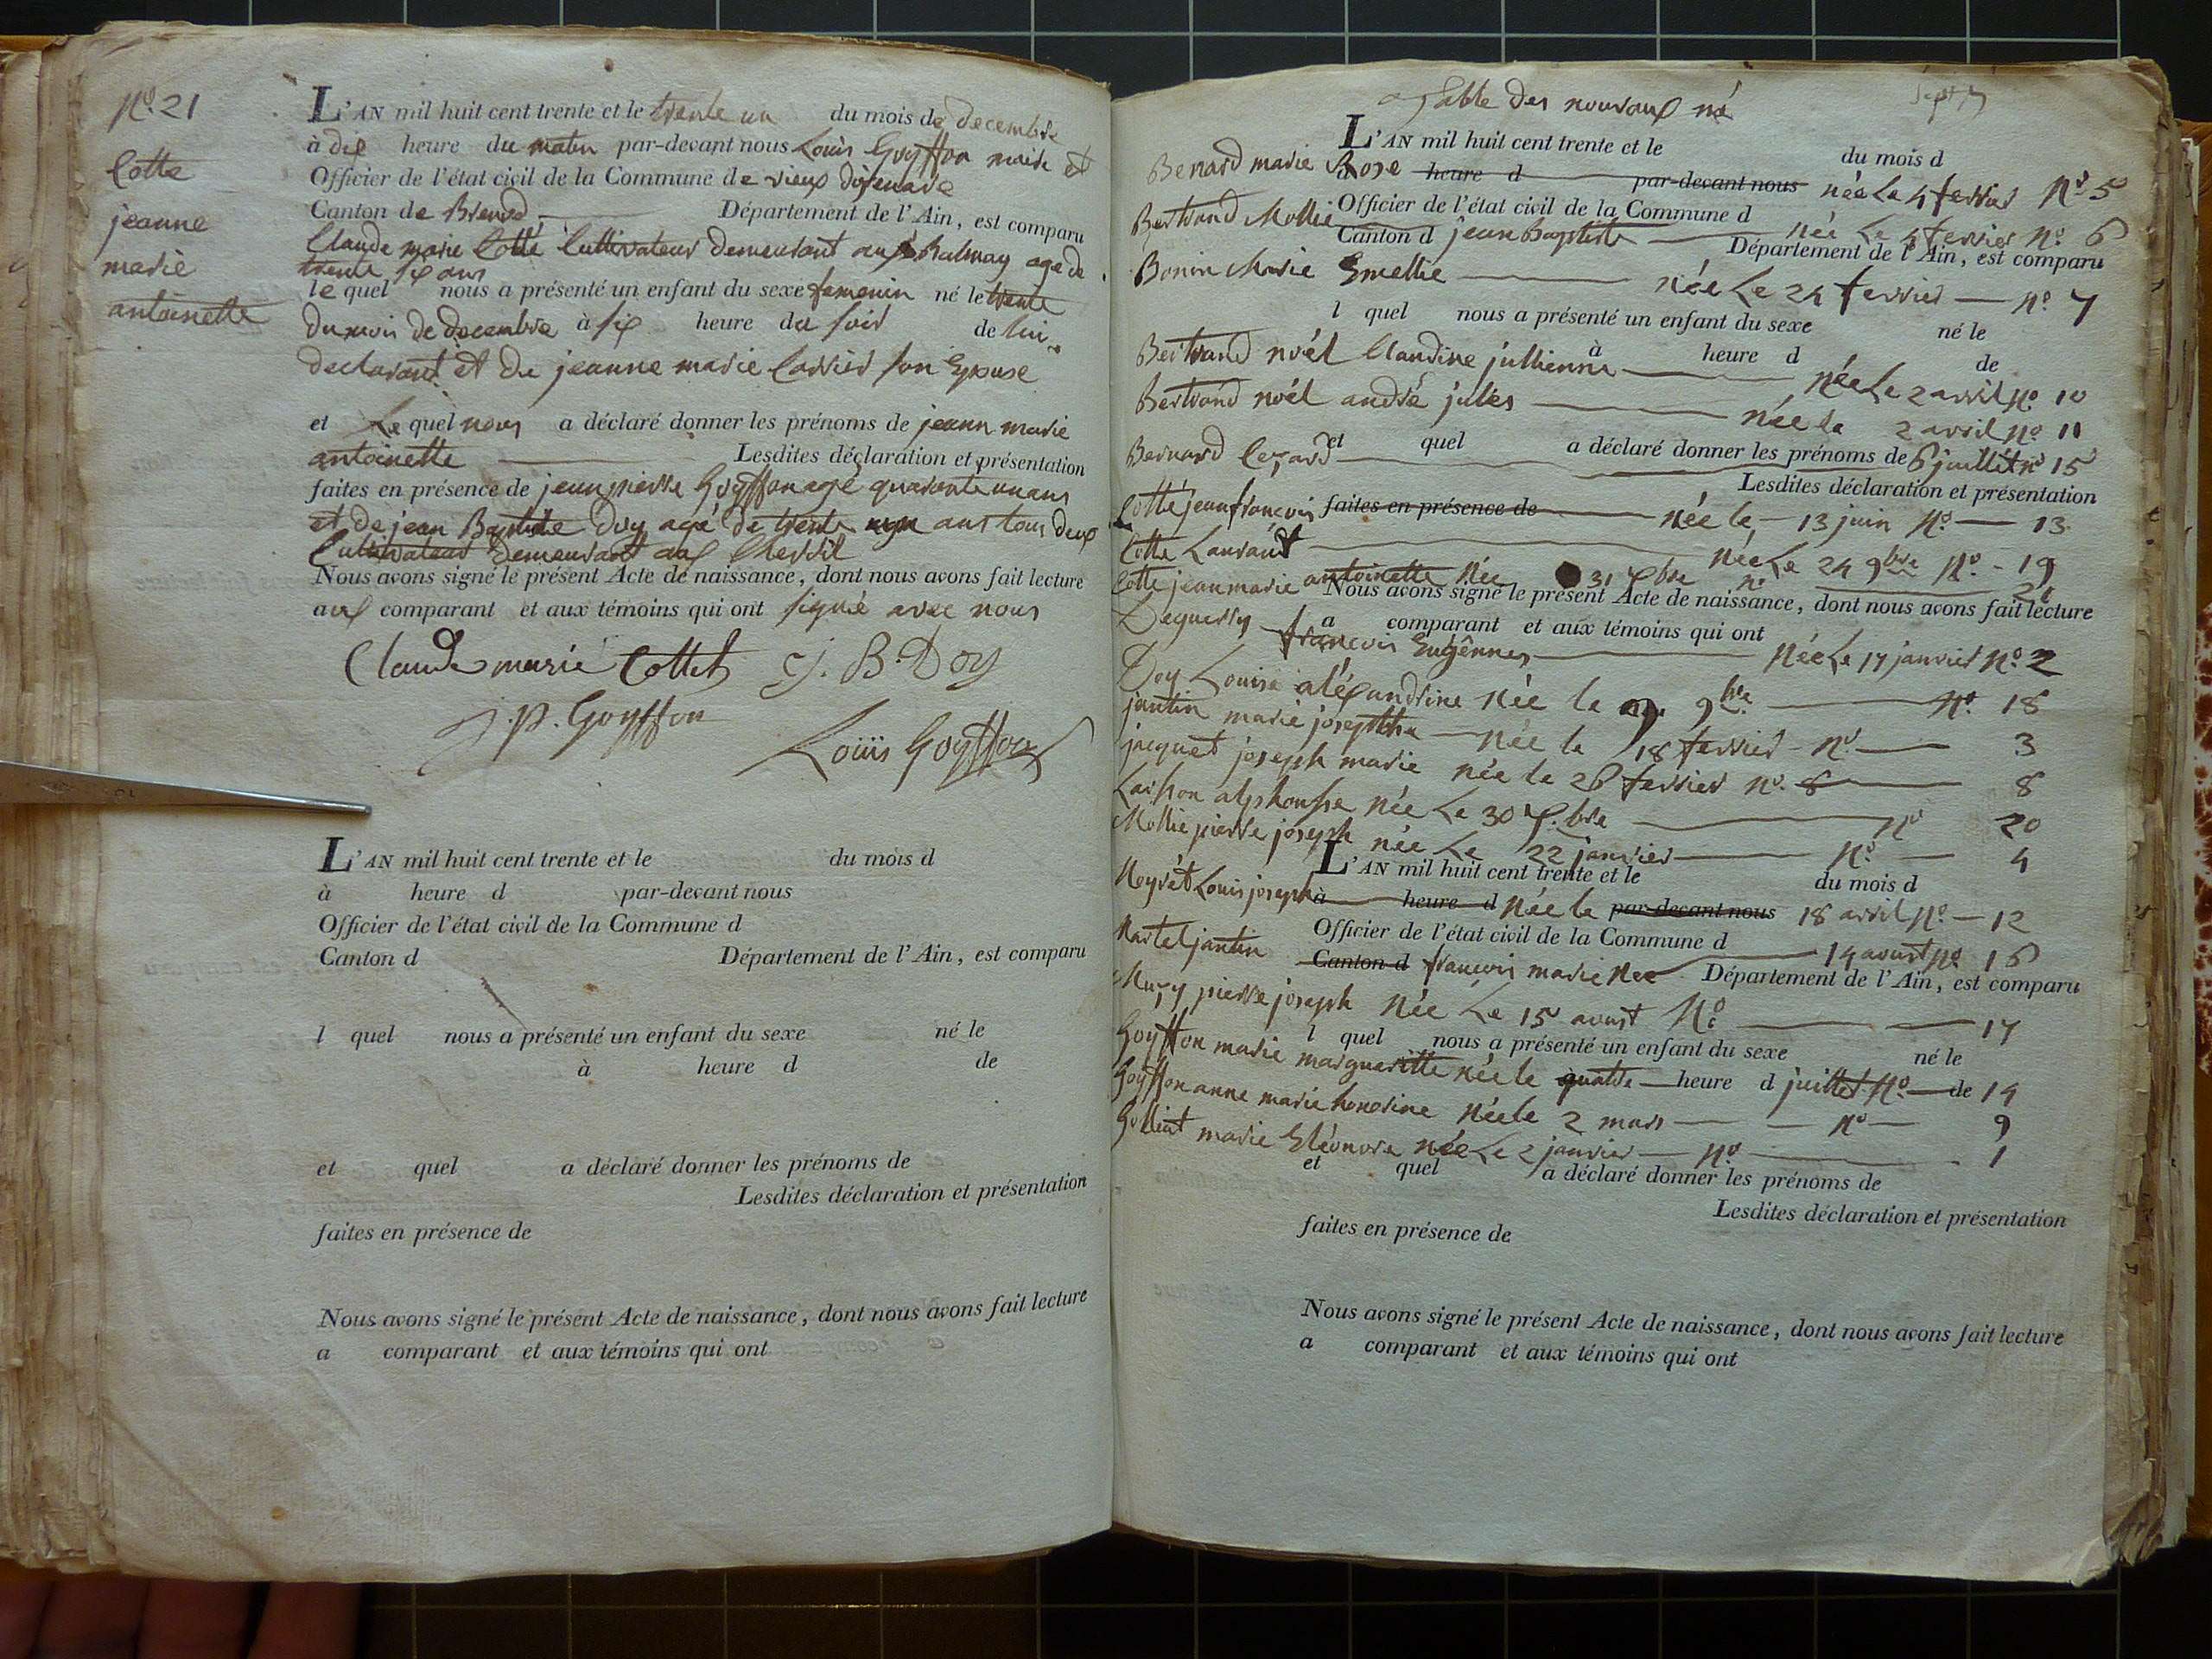 N.º 21
Cotte
jeanne
marie
antoinette
L'AN mil huit cent trente et le trente un du mois de decembre
à dix heure du matin par-devant nous Louis Goyffon maire et
Officier de l'état civil de la Commune de vieux disenave
Canton de Brenod Département de l'Ain, est comparu
Claude marie Cotte Cultivateur demeurant aux Balmay age de
trente six ans
le quel nous a présenté un enfant du sexe femenin né le trente
du mois de decembre à six heure du soir de lui
declarant et de jeanne marie Carrier son Epouse
et Le quel nous a déclaré donner les prénoms de jeann marie
antoinette Lesdites déclaration et présentation
faites en présence de jean pierre Goyffon agé quarante un ans
et de jean Baptiste Doy agé de trente ans tous deux
Cultivateur demeurant aux
Nous avons signé le présent Acte de naissance, dont nous avons fait lecture
aux comparant et aux témoins qui ont signé avec nous
Claude marie Cottet J. B. Doy
J. P. Goyffon
Louis Goyffon
L'AN mil huit cent trente et le du mois d
à heure d par-devant nous
Officier de l'état civil de la Commune d
Canton d Département de l'Ain, est comparu
l quel nous a présenté un enfant du sexe né le
à heure d de
et quel a déclaré donner les prénoms de
Lesdites déclaration et présentation
faites en présence de
Nous avons signé le présent Acte de naissance, dont nous avons fait lecture
a comparant et aux témoins qui ont
Table des nouvaux né
L'AN mil huit cent trente et le du mois d
Benard marie Rose heure d par-devant nous née Le 4 fevrier N.º 5
Officier de l'état civil de la Commune d
Bertrand Mollie Canton d jean Baptiste né Le 4 fevrier N.º 6
Département de l'Ain, est comparu
Bonin Marie Emellie née Le 24 fevrier N.º 7
l quel nous a présenté un enfant du sexe né le
à heure d de
Bertrand noél Claudine jullienne née Le 2 avril N.º 10
Bertrand noél andré jules née le 2 avril N.º 11
et quel a déclaré donner les prénoms de
Bernard Cezard 6 juillet N.º 15
Lesdites déclaration et présentation
Cotte jean francois faites en présence de née le 13 juin N.º 13
Cotte Laurant née Le 24 9bre N.º 19
Cotte jean marie antoinette née 31 Xbre n.º 21
Nous avons signé le présent Acte de naissance, dont nous avons fait lecture
a comparant et aux témoins qui ont
francois Eugênnes née Le 17 janvier N.º 2
Doy Louise aléxandrine née le 9bre N.º 18
jantin marie josephte née le 18 fevrier N.º 3
jacquet joseph marie née le 26 fevrier N.º 8 8
alphonse née Le 30 Xbre N.º 20
Mollie pierre joseph née Le 22 janvier N.º 4
L'AN mil huit cent trente et le du mois d
Louis joseph à heure d née le par-devant nous 18 avril N.º 12
Officier de l'état civil de la Commune d
Martel jantin Canton d francois marie née 14 aoust N.º 16
Département de l'Ain, est comparu
Muzy pierre joseph née Le 15 avust N.º 17
l quel nous a présenté un enfant du sexe né le
Goyffon marie margueritte née le quatre heure d juillet N.º de 14
Goyffon anne marie honorine née le 2 mars N.º 9
Golliat marie Eléonore née Le 2 janvier N.º 1
et quel a déclaré donner les prénoms de
Lesdites déclaration et présentation
faites en présence de
Nous avons signé le présent Acte de naissance, dont nous avons fait lecture
a comparant et aux témoins qui ont